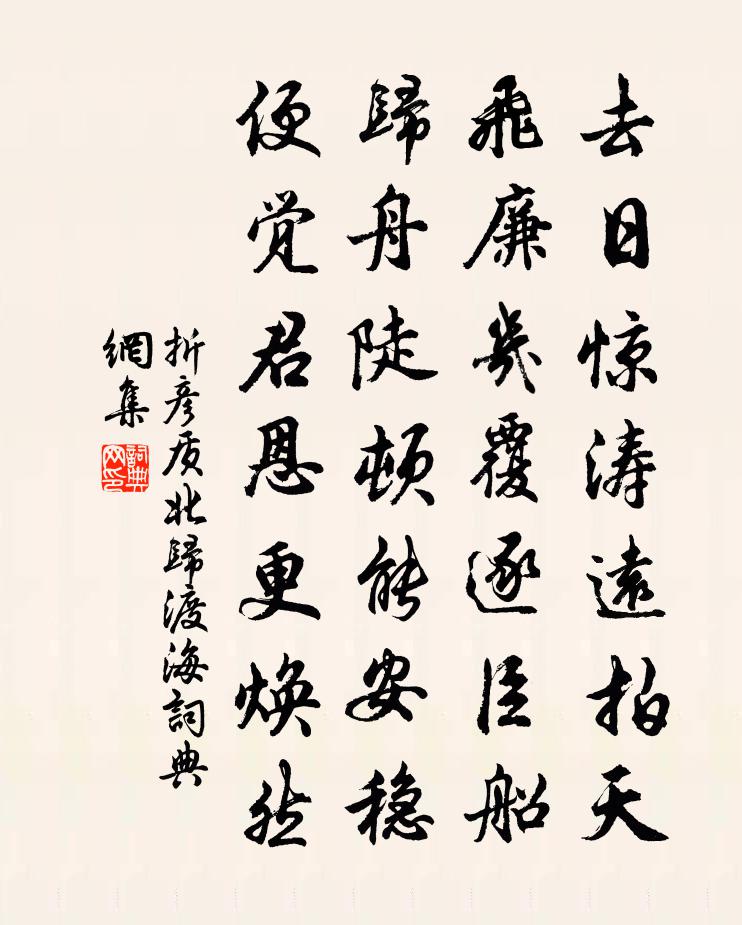 去日惊涛遠拍天
飛廉幾覆逐臣船
歸舟陡頓能安穏
便覺君恩更焕然
折彦质北歸渡海詞典
網集
詞典
网印